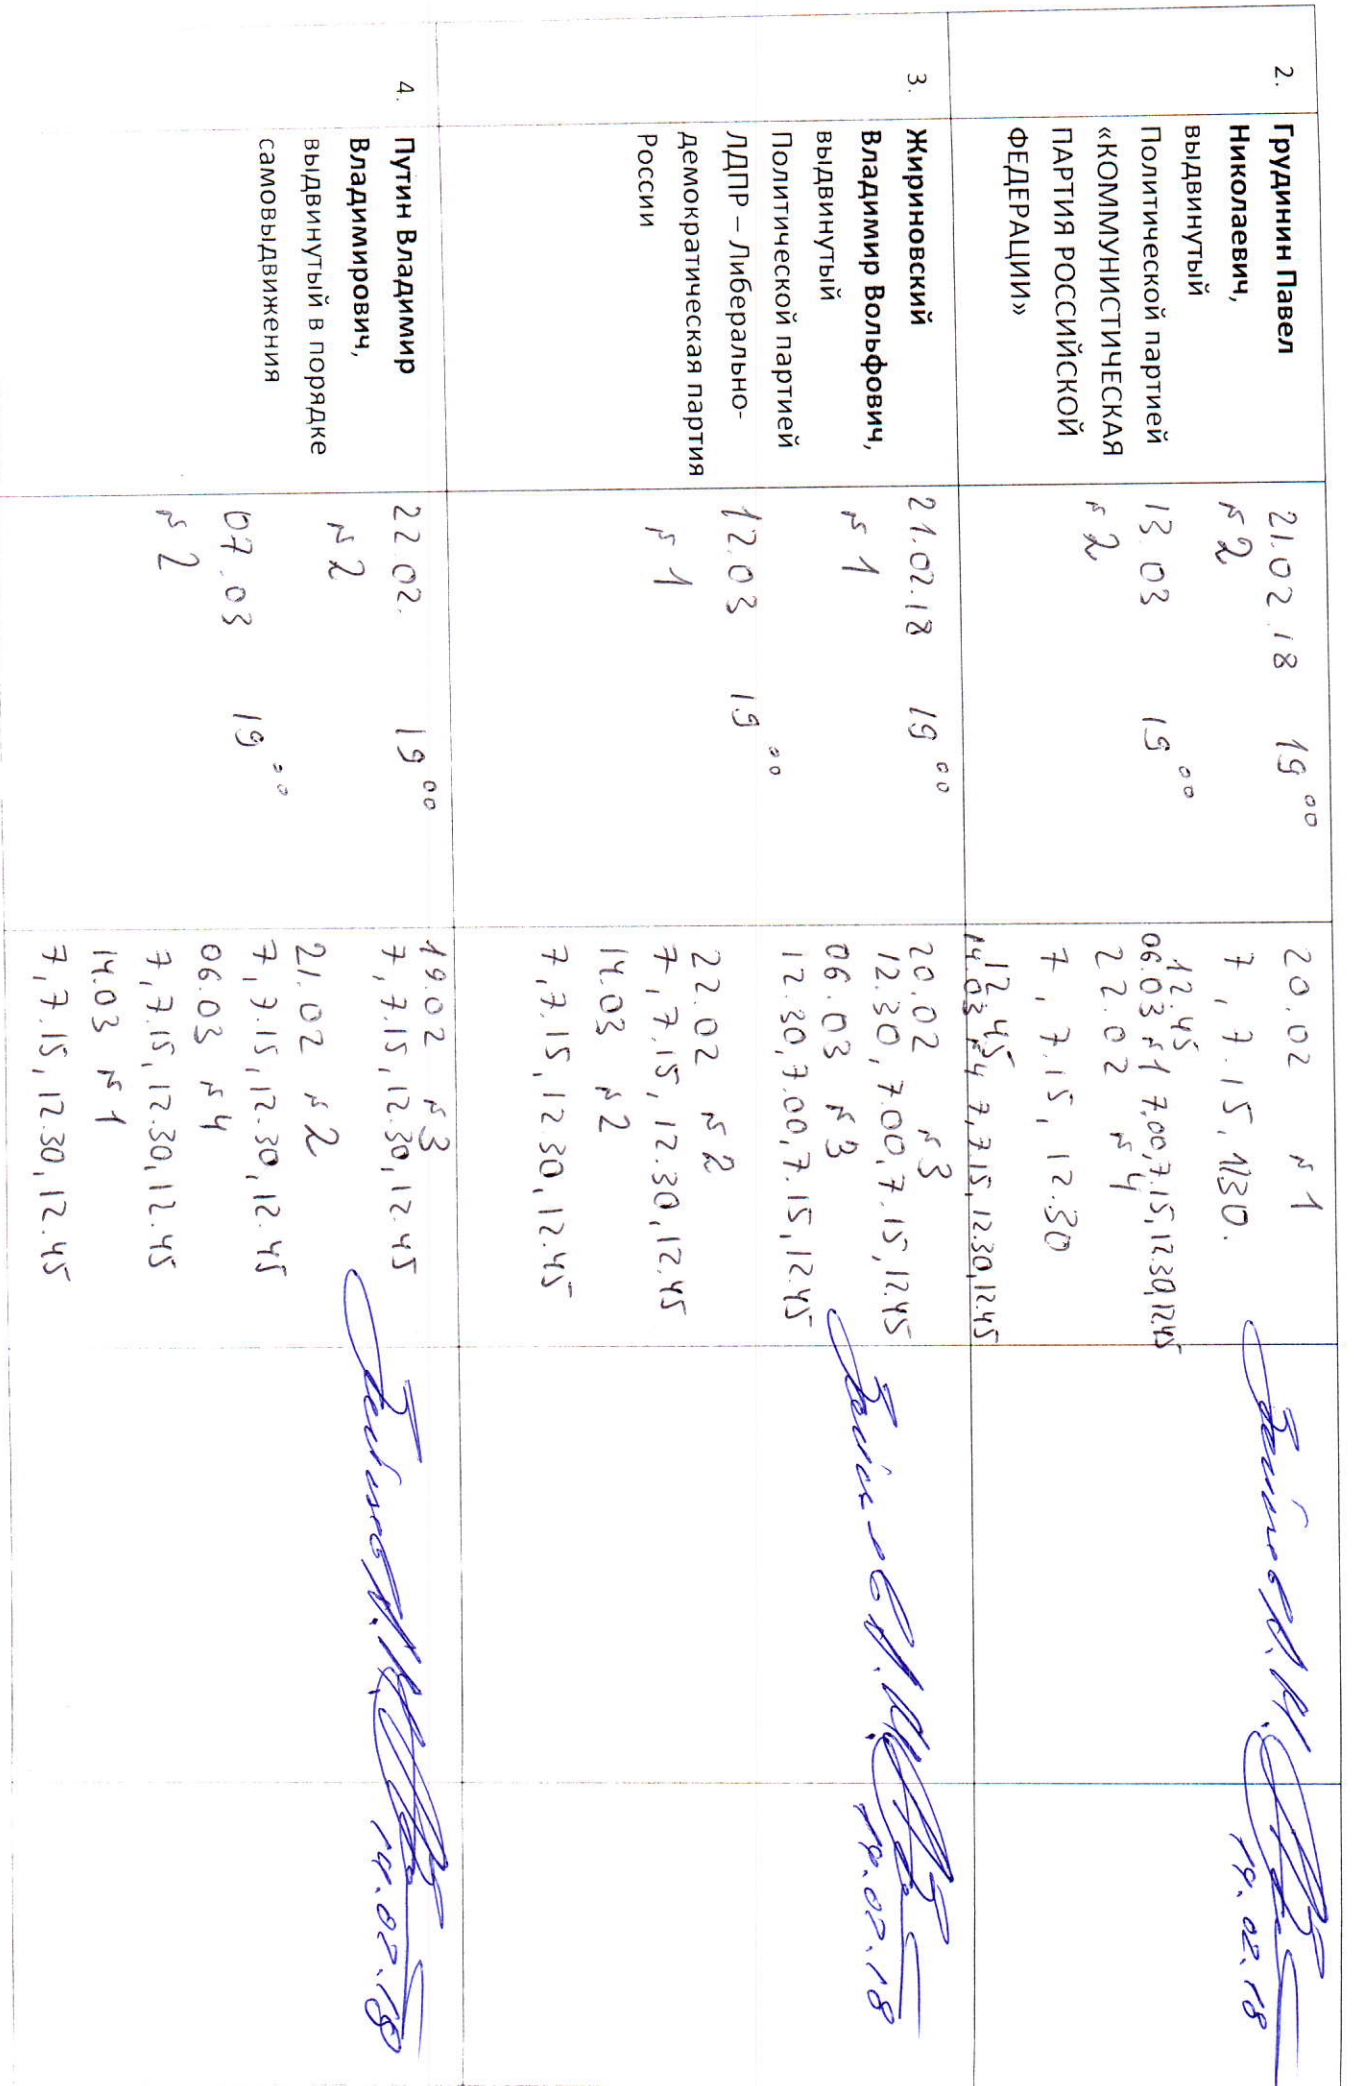 2.
Грудинин Павел
Николаевич,
выдвинутый
Политической партией
«КОММУНИСТИЧЕСКАЯ
ПАРТИЯ РОССИЙСКОЙ
ФЕДЕРАЦИИ»
21.02.18 19 00
№ 2
13.03 19 00
№ 2
20.02 № 1
7, 7.15, 12.30.
12.45
06.03 № 1 7.00, 7.15, 12.30, 12.45
22.02 № 4
7, 7.15, 12.30
12.45
14.03 № 4 7, 7.15, 12.30, 12.45
14.02.18
3.
Жириновский
Владимир Вольфович,
выдвинутый
Политической партией
ЛДПР – Либерально-
демократическая партия
России
21.02.18 19 00
№ 1
12.03 19 00
№ 1
20.02 № 3
12.30, 7.00, 7.15, 12.45
06.03 № 3
12.30, 7.00, 7.15, 12.45
22.02 № 2
7, 7.15, 12.30, 12.45
14.03 № 2
7, 7.15, 12.30, 12.45
14.02.18
4.
Путин Владимир
Владимирович,
выдвинутый в порядке
самовыдвижения
22.02. 19 00
№ 2
07.03 19 00
№ 2
19.02 № 3
7, 7.15, 12.30, 12.45
21.02 № 2
7, 7.15, 12.30, 12.45
06.03 № 4
7, 7.15, 12.30, 12.45
14.03 № 1
7, 7.15, 12.30, 12.45
14.02.18